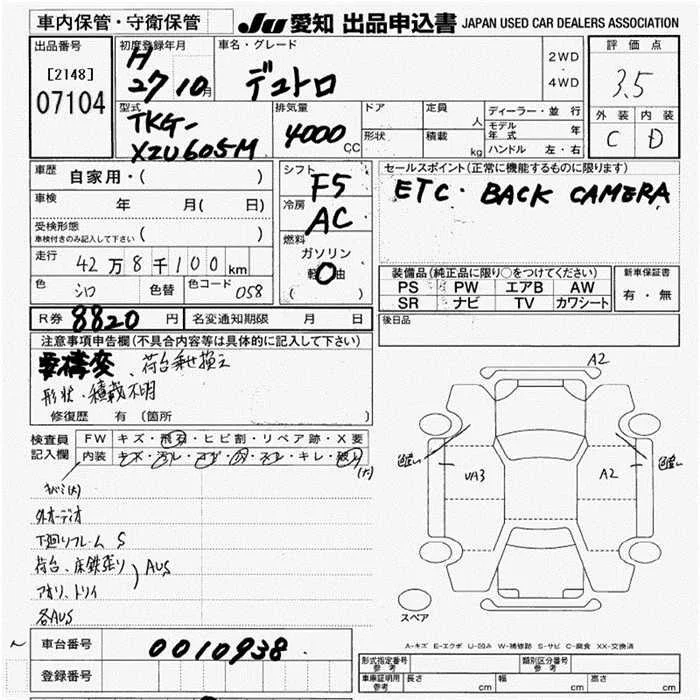 車内保管・守衛保管
JU 愛知 出品申込書 JAPAN USED CAR DEALERS ASSOCIATION
出品番号
[2148]
07104
初度登録年月
H
27 10月
車名・グレード
デュトロ
2WD
・
4WD
評価点
3.5
外装 内装
C D
型式
TKG-
XZU605M
排気量
4000 CC
ドア
定員
人
形状
積載
kg
ディーラー・並行
モデル年式 年
ハンドル 左・右
車歴 自家用・( )
車検 年 月( 日)
受検形態
車検付きのみ記入して下さい ( )
走行 42万8千100 km
色 シロ 色替 色コード 058
シフト F5
冷房 AC
燃料
ガソリン
軽油
( )
セールスポイント(正常に機能するものに限ります)
ETC・BACK CAMERA
装備品(純正品に限り○をつけてください)
PS PW エアB AW
SR ナビ TV カワシート
新車保証書
有・無
R券 8820 円 名変通知期限 月 日
後日品
注意事項申告欄(不具合内容等は具体的に記入して下さい)
要構変、荷台乗せ換え
形状・積載不明
修復歴 有 (箇所 )
検査員記入欄
FW キズ・飛石・ヒビ割・リペア跡・X要
内装 キズ・汚レ・コゲ・穴・スレ・キレ・破レ
(大)
外オーディオ
下廻りフレーム S
荷台、床鉄張り
アオリ、トリイ
AUS
各AUS
A2
色違い
UA3
A2
色違い
スペア
A-キズ E-エクボ U-凹み W-補修跡 S-サビ C-腐食 XX-交換済
車台番号 0010938
登録番号
形式指定番号 参考
類別区分番号 参考
車庫証明用 参考 長さ cm 幅 cm 高さ cm